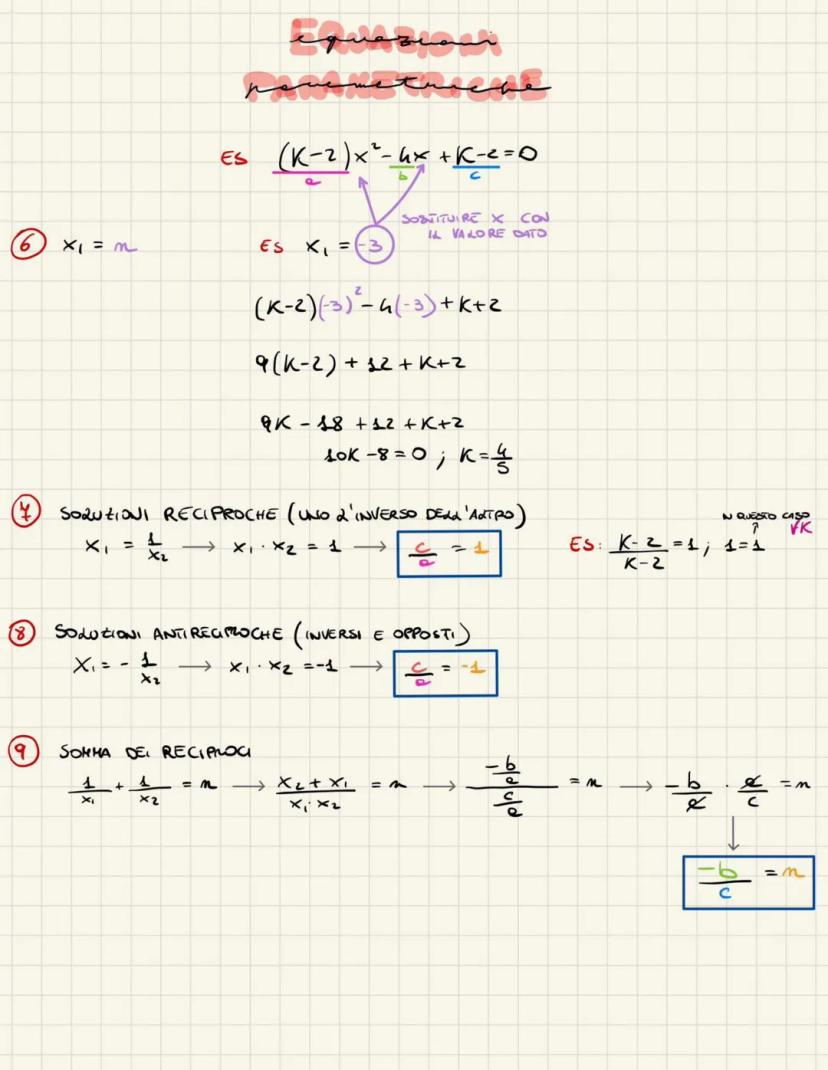 EQUAZIONI
equazioni
PARAMETRICHE
parametriche
ES (K-2)x² - 4x + K-2 = 0
a b c
SOSTITUIRE X CON
IL VALORE DATO
6 x₁ = n ES x₁ = -3
(K-2)(-3)² - 4(-3) + K+2
9(K-2) + 12 + K+2
9K - 18 + 12 + K+2
10K - 8 = 0 ; K = 4/5
7 SOLUZIONI RECIPROCHE (UNO L'INVERSO DELL'ALTRO)
x₁ = 1/x₂ → x₁ · x₂ = 1 → c/a = 1 ES: K-2/K-2 = 1 ; 1 = 1 ↑ IN QUESTO CASO ∀K
8 SOLUZIONI ANTIRECIPROCHE (INVERSI E OPPOSTI)
x₁ = - 1/x₂ → x₁ · x₂ = -1 → c/a = -1
9 SOMMA DEI RECIPROCI
1/x₁ + 1/x₂ = n → x₂ + x₁/x₁ · x₂ = n → -b/a / c/a = n → -b/a · a/c = n
↓
-b/c = n